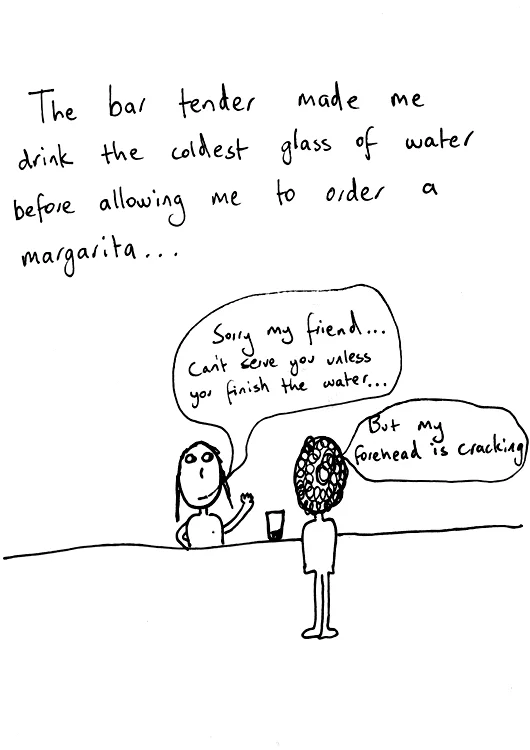 The bar tender made me
drink the coldest glass of water
before allowing me to order a
margarita...
Sorry my friend...
Can't serve you unless
you finish the water...
But my
forehead is cracking